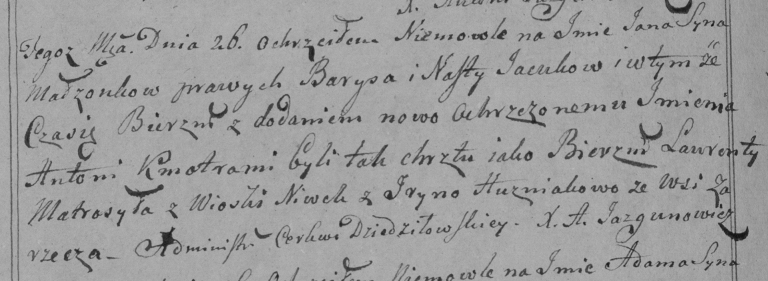 X.
Tegoż Mca. Dnia 26. Ochrzciłem Niemowle na Jmie Jana Syna
Małżonkow prawych Barysa i Nasty Jacukow i wtym że
Czasię Bierzm z dodaniem nowo Ochrzczonemu Jmienia
Antoni Kmotrami byli tak chrztu iako Bierzm Lawrenty
Matrosyła z Wioski Niwek z Jryno Huzniakowo ze Wsi Za
rzecza - Administr Cerkwi Dziedziłowskiey. X. A. Jazgunowicz
Ochrzciłem Niemowle na Jmie Adama Syna